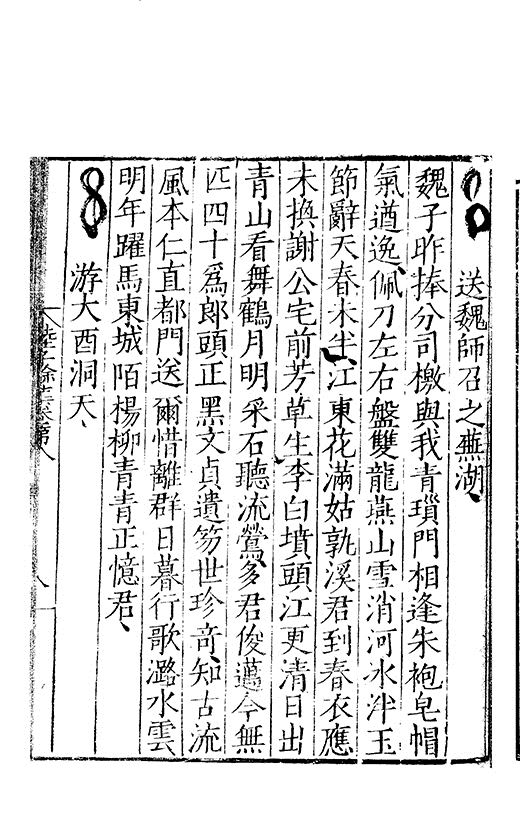 送魏師召之蕪湖、
魏子昨捧分司檄與我青瑣門相逢朱袍皂帽
氣遒逸、佩刀左右盤雙龍燕山雪消河水泮玉
節辭天春未半、江東花滿姑孰溪君到春衣應
未換謝公宅前芳草生李白墳頭江更清日出
青山看舞鶴月明采石聽流鶯、多君俊邁今無
匹四十爲郎頭正黑文貞遺笏世珍奇、知古流
風本仁直都門送爾惜離群日暮行歌潞水雲
明年躍馬東城陌楊柳青青正憶君、
游大酉洞天、
八